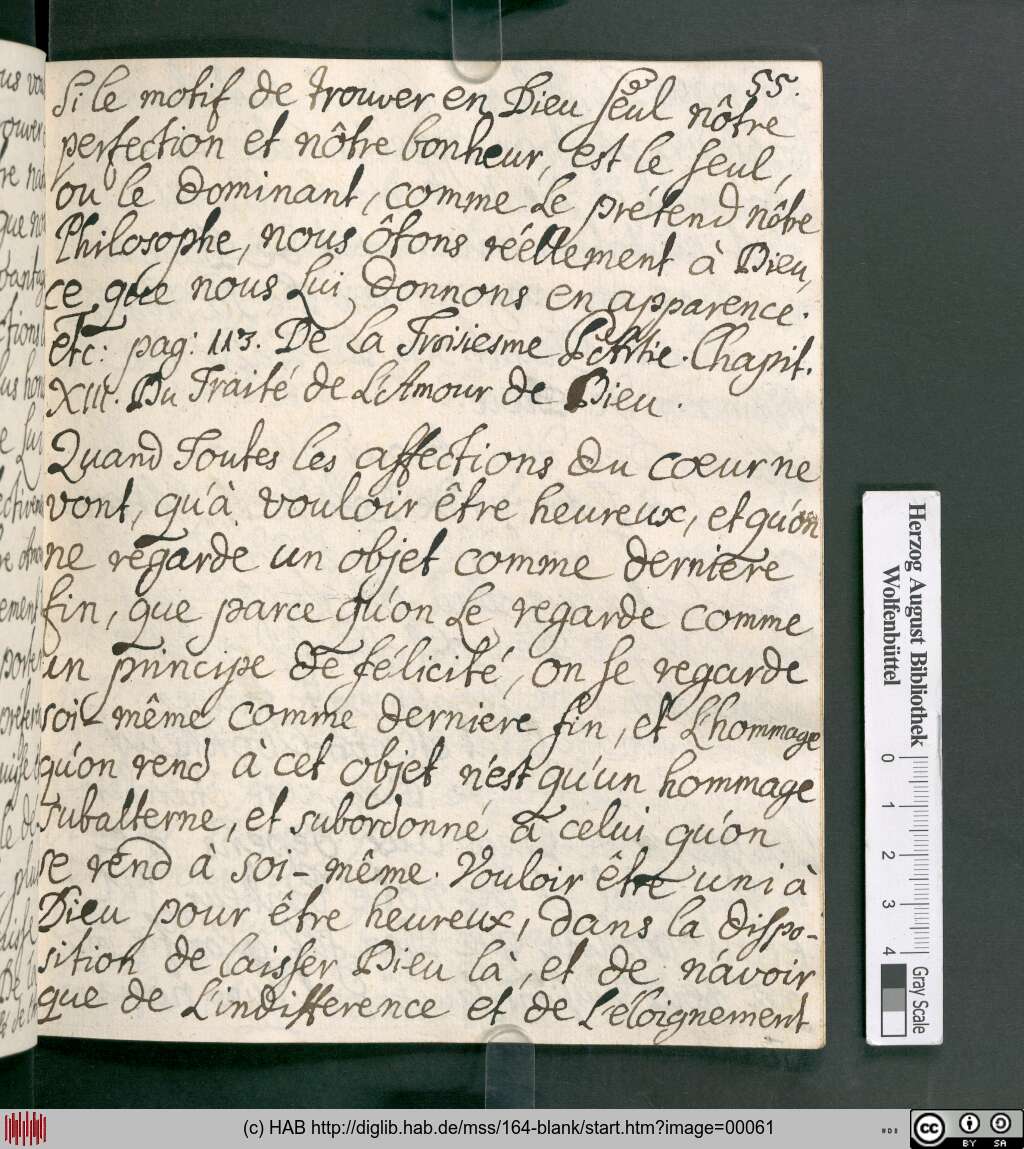 55.
Si le motif de trouver en Dieu seul nôtre
perfection et nôtre bonheur, est le seul,
ou le dominant, comme le prétend nôtre
Philosophe, nous ôtons réellement à Dieu,
ce que nous Lui donnons en apparence.
Etc: pag: 113. De la Troisiesme Partie. Chapit.
XIII. Du Traité de L'Amour de Dieu.
Quand Toutes les affections du cœur ne
vont, qu'à vouloir être heureux, et qu'on
ne regarde un objet comme derniere
fin, que parce qu'on Le regarde comme
un principe de félicité, on se regarde
soi-même comme derniere fin, et L'hommage
qu'on rend à cet objet n'est qu'un hommage
subalterne, et subordonné à celui qu'on
se rend à soi-même. Vouloir être uni à
Dieu pour être heureux, dans la dispo-
sition de laisser Dieu là, et de n'avoir
que de L'indifference et de L'éloignement
Herzog August Bibliothek
Wolfenbüttel
0 1 2 3 4
Gray Scale
(c) HAB http://diglib.hab.de/mss/164-blank/start.htm?image=00061
cc BY SA